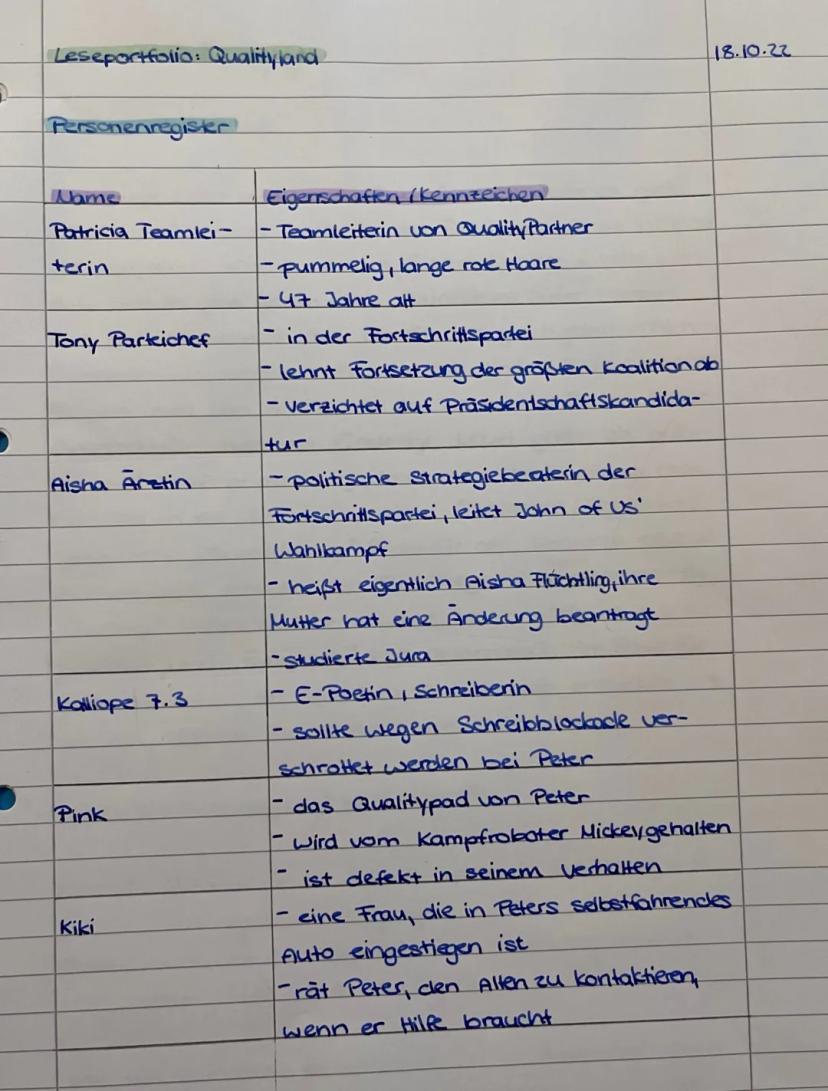 Leseportfolio: Qualityland 18.10.22
Personenregister
Name Eigenschaften / Kennzeichen
Patricia Teamlei- - Teamleiterin von QualityPartner
terin - pummelig, lange rote Haare
- 47 Jahre alt
Tony Parteichef - in der Fortschrittspartei
- lehnt Fortsetzung der größten Koalition ab
- verzichtet auf Präsidentschaftskandida-
tur
Aisha Ärztin - politische Strategieberaterin der
Fortschrittspartei, leitet John of Us'
Wahlkampf
- heißt eigentlich Aisha Flüchtling, ihre
Mutter hat eine Änderung beantragt
- studierte Jura
Kalliope 7.3 - E-Poetin, Schreiberin
- sollte wegen Schreibblockade ver-
schrottet werden bei Peter
Pink - das Qualitypad von Peter
- wird vom Kampfroboter Mickey gehalten
- ist defekt in seinem Verhalten
Kiki - eine Frau, die in Peters selbstfahrendes
Auto eingestiegen ist
- rät Peter, den Alten zu kontaktieren,
wenn er Hilfe braucht